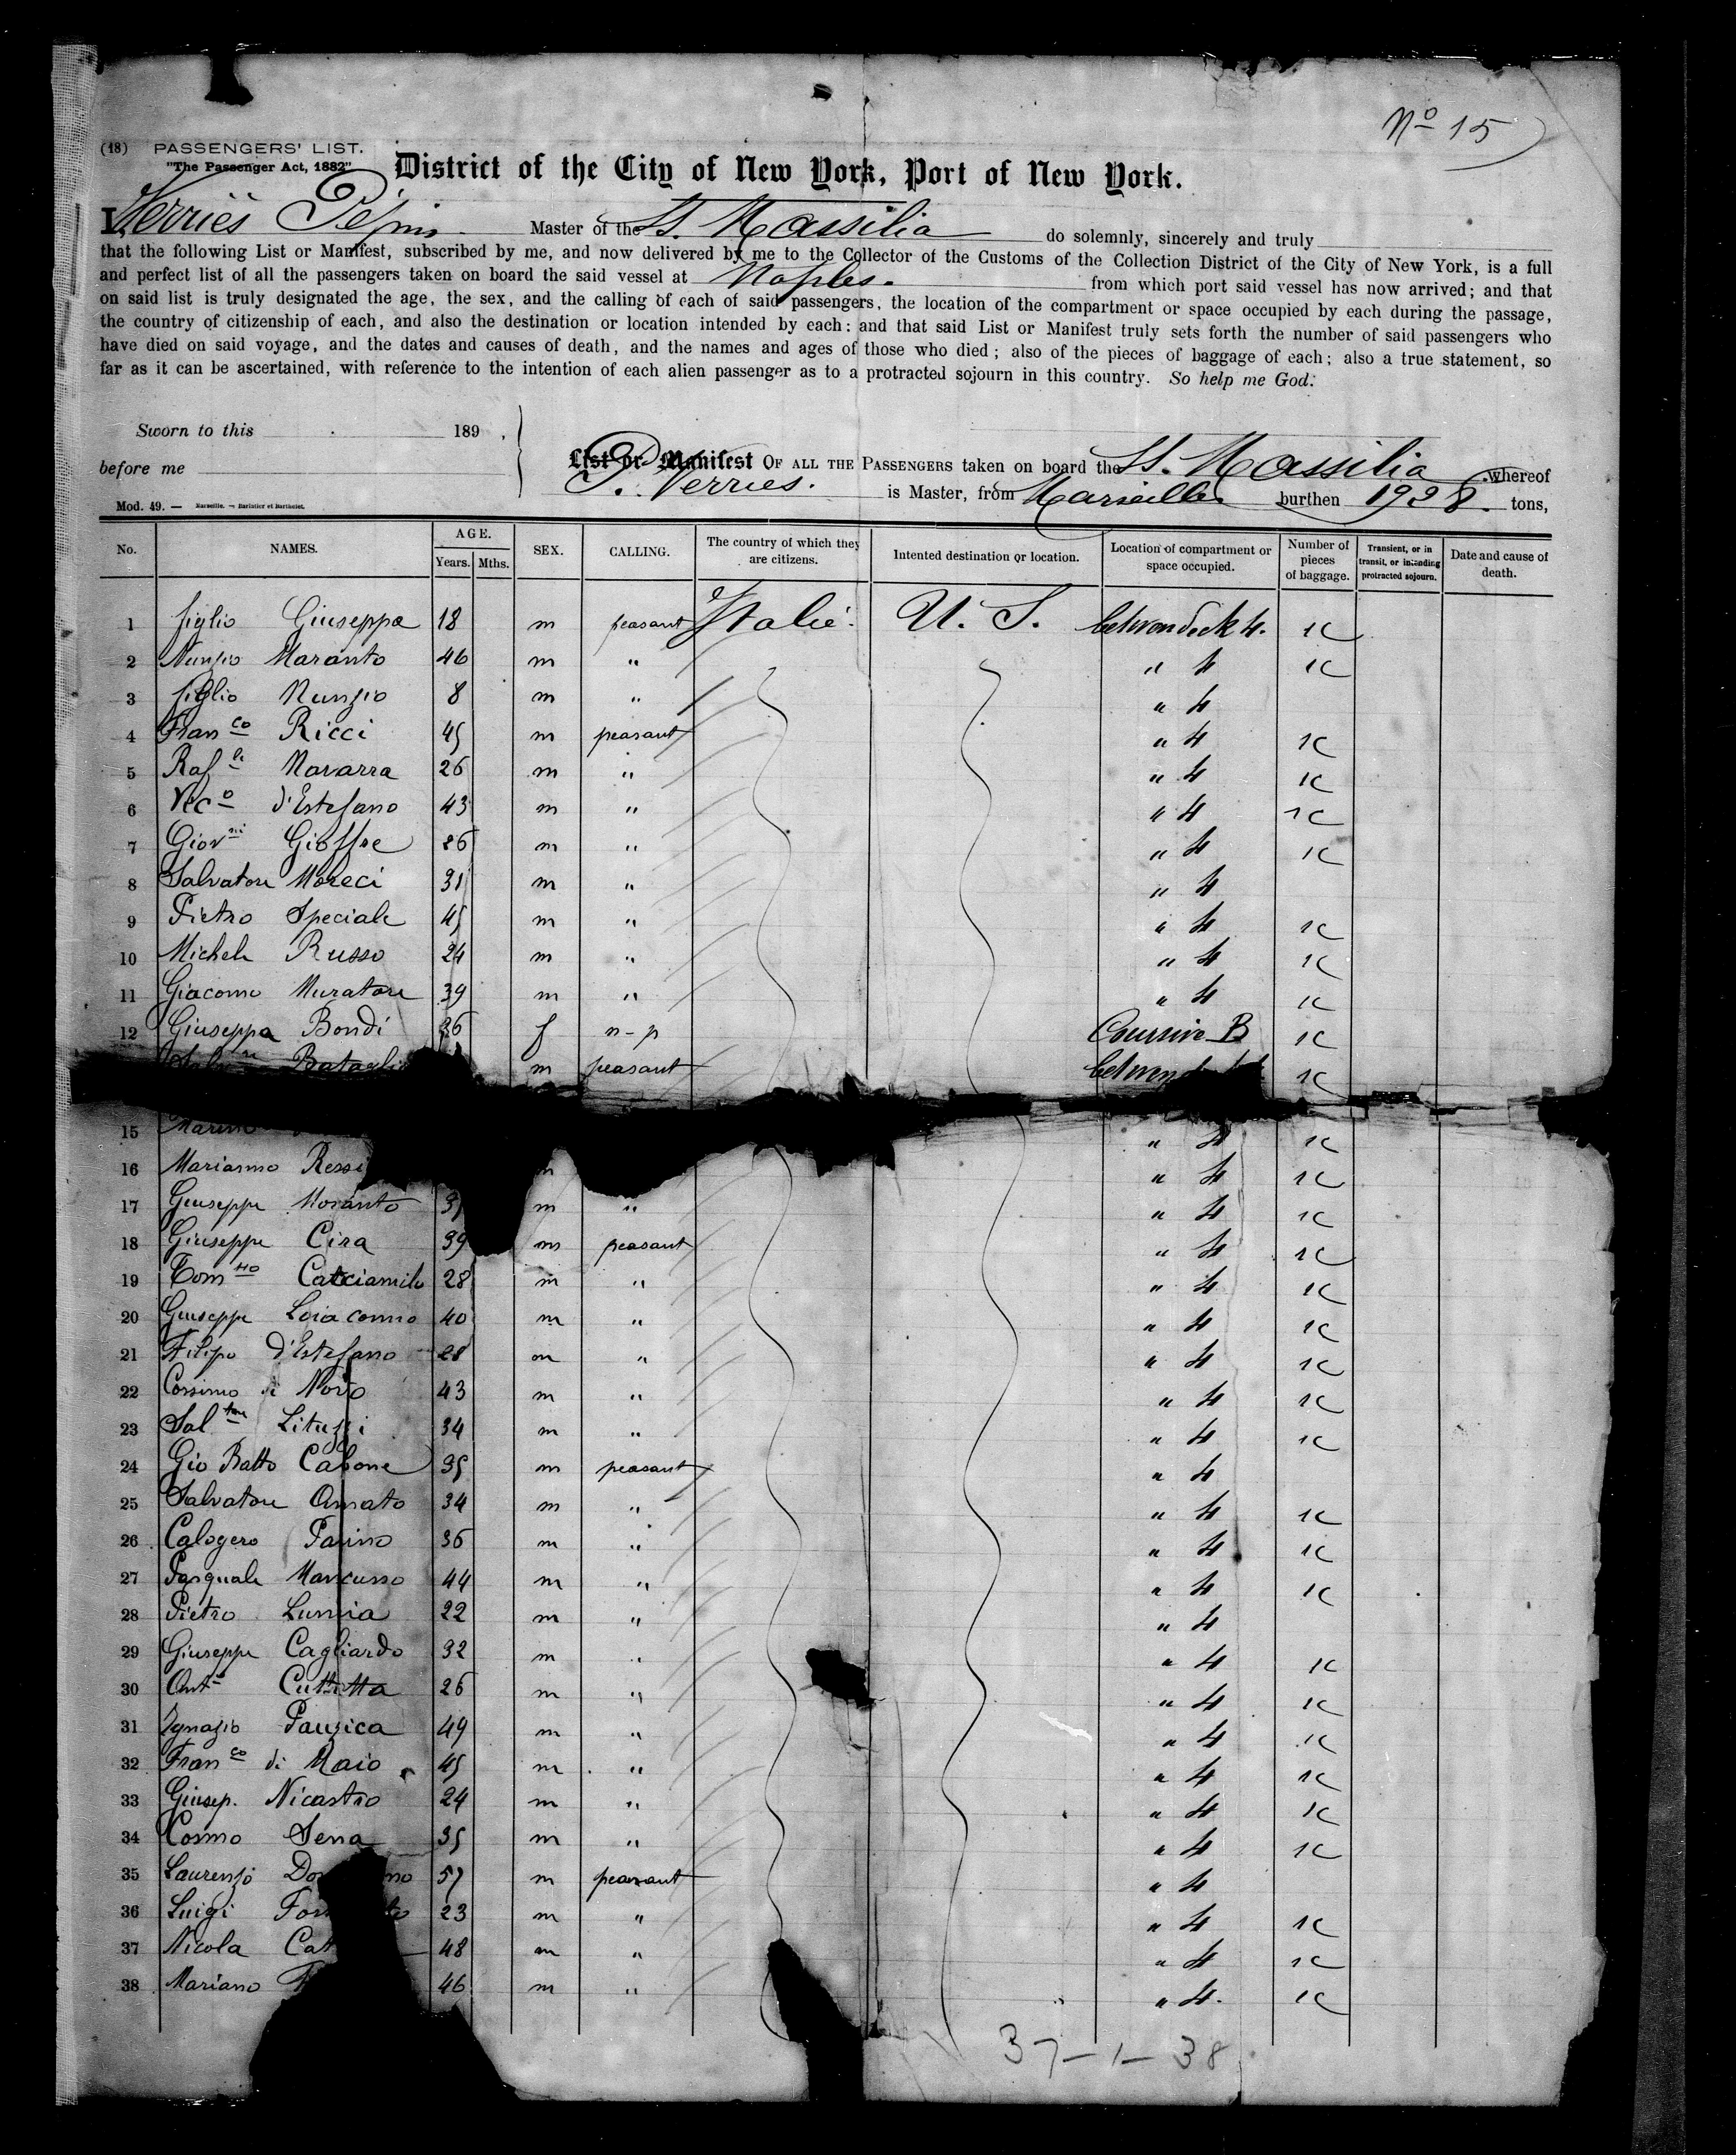 Nº 15
(18) PASSENGERS' LIST.
"The Passenger Act, 1882"
District of the City of New York, Port of New York.
I, Verriés Pépin Master of the SS. Massilia do solemnly, sincerely and truly
that the following List or Manifest, subscribed by me, and now delivered by me to the Collector of the Customs of the Collection District of the City of New York, is a full
and perfect list of all the passengers taken on board the said vessel at Naples. from which port said vessel has now arrived; and that
on said list is truly designated the age, the sex, and the calling of each of said passengers, the location of the compartment or space occupied by each during the passage,
the country of citizenship of each, and also the destination or location intended by each: and that said List or Manifest truly sets forth the number of said passengers who
have died on said voyage, and the dates and causes of death, and the names and ages of those who died; also of the pieces of baggage of each; also a true statement, so
far as it can be ascertained, with reference to the intention of each alien passenger as to a protracted sojourn in this country. So help me God.
Sworn to this 189 ,
before me
List or Manifest OF ALL THE PASSENGERS taken on board the SS. Massilia whereof
P. Verries. is Master, from Marseilles burthen 1928. tons,
Mod. 49. — Marseille. — Barlatier et Barthelet.
No. NAMES. AGE. Years. Mths. SEX. CALLING. The country of which they are citizens. Intented destination or location. Location of compartment or space occupied. Number of pieces of baggage. Transient, or in transit, or intending protracted sojourn. Date and cause of death.
1 figlio Giuseppe 18 m peasant Italie. U. S. betwendeck 4. 1C
2 Nunzio Maranto 46 m " " 4 1C
3 figlio Nunzio 8 m " " 4
4 Franco Ricci 45 m peasant " 4 1C
5 Rafle Navarra 26 m " " 4 1C
6 Vco d'Estefano 43 m " " 4 1C
7 Giovni Gioffre 26 m " " 4 1C
8 Salvatore Moreci 31 m " " 4
9 Pietro Speciale 45 m " " 4 1C
10 Michele Russo 24 m " " 4 1C
11 Giacomo Muratore 39 m " " 4 1C
12 Giuseppa Bondi 36 f n-p Coursive B 1C
m peasant 1C
15 " 4 1C
16 Marianno " 4 1C
17 Giuseppe Moranto m " " 4 1C
18 Giuseppe Cira 39 m peasant " 4 1C
19 Tommo Catciamilo 28 m " " 4 1C
20 Giuseppe Loiaconno 40 m " " 4 1C
21 Filipo d'Estefano 28 m " " 4 1C
22 Cossimo di Novo 43 m " " 4 1C
23 Saltore Lituzzi 34 m " " 4 1C
24 Gio Batto Cabone 35 m peasant " 4
25 Salvatore Amato 34 m " " 4 1C
26 Calogero Parino 36 m " " 4 1C
27 Pasquale Mancusso 44 m " " 4 1C
28 Pietro Lumia 22 m " " 4
29 Giuseppe Cagliardo 32 m " " 4 1C
30 Anto Cuttitta 26 m " " 4 1C
31 Ignazio Pauzica 49 m " " 4 1C
32 Franco di Maio 45 m " " 4 1C
33 Giusep. Nicastro 24 m " " 4 1C
34 Cosmo Sena 35 m " " 4 1C
35 Laurenzo 57 m peasant " 4
36 Luigi 23 m " " 4 1C
37 Nicola 48 m " " 4 1C
38 Mariano 46 m " " 4. 1C
37 — 1 — 38